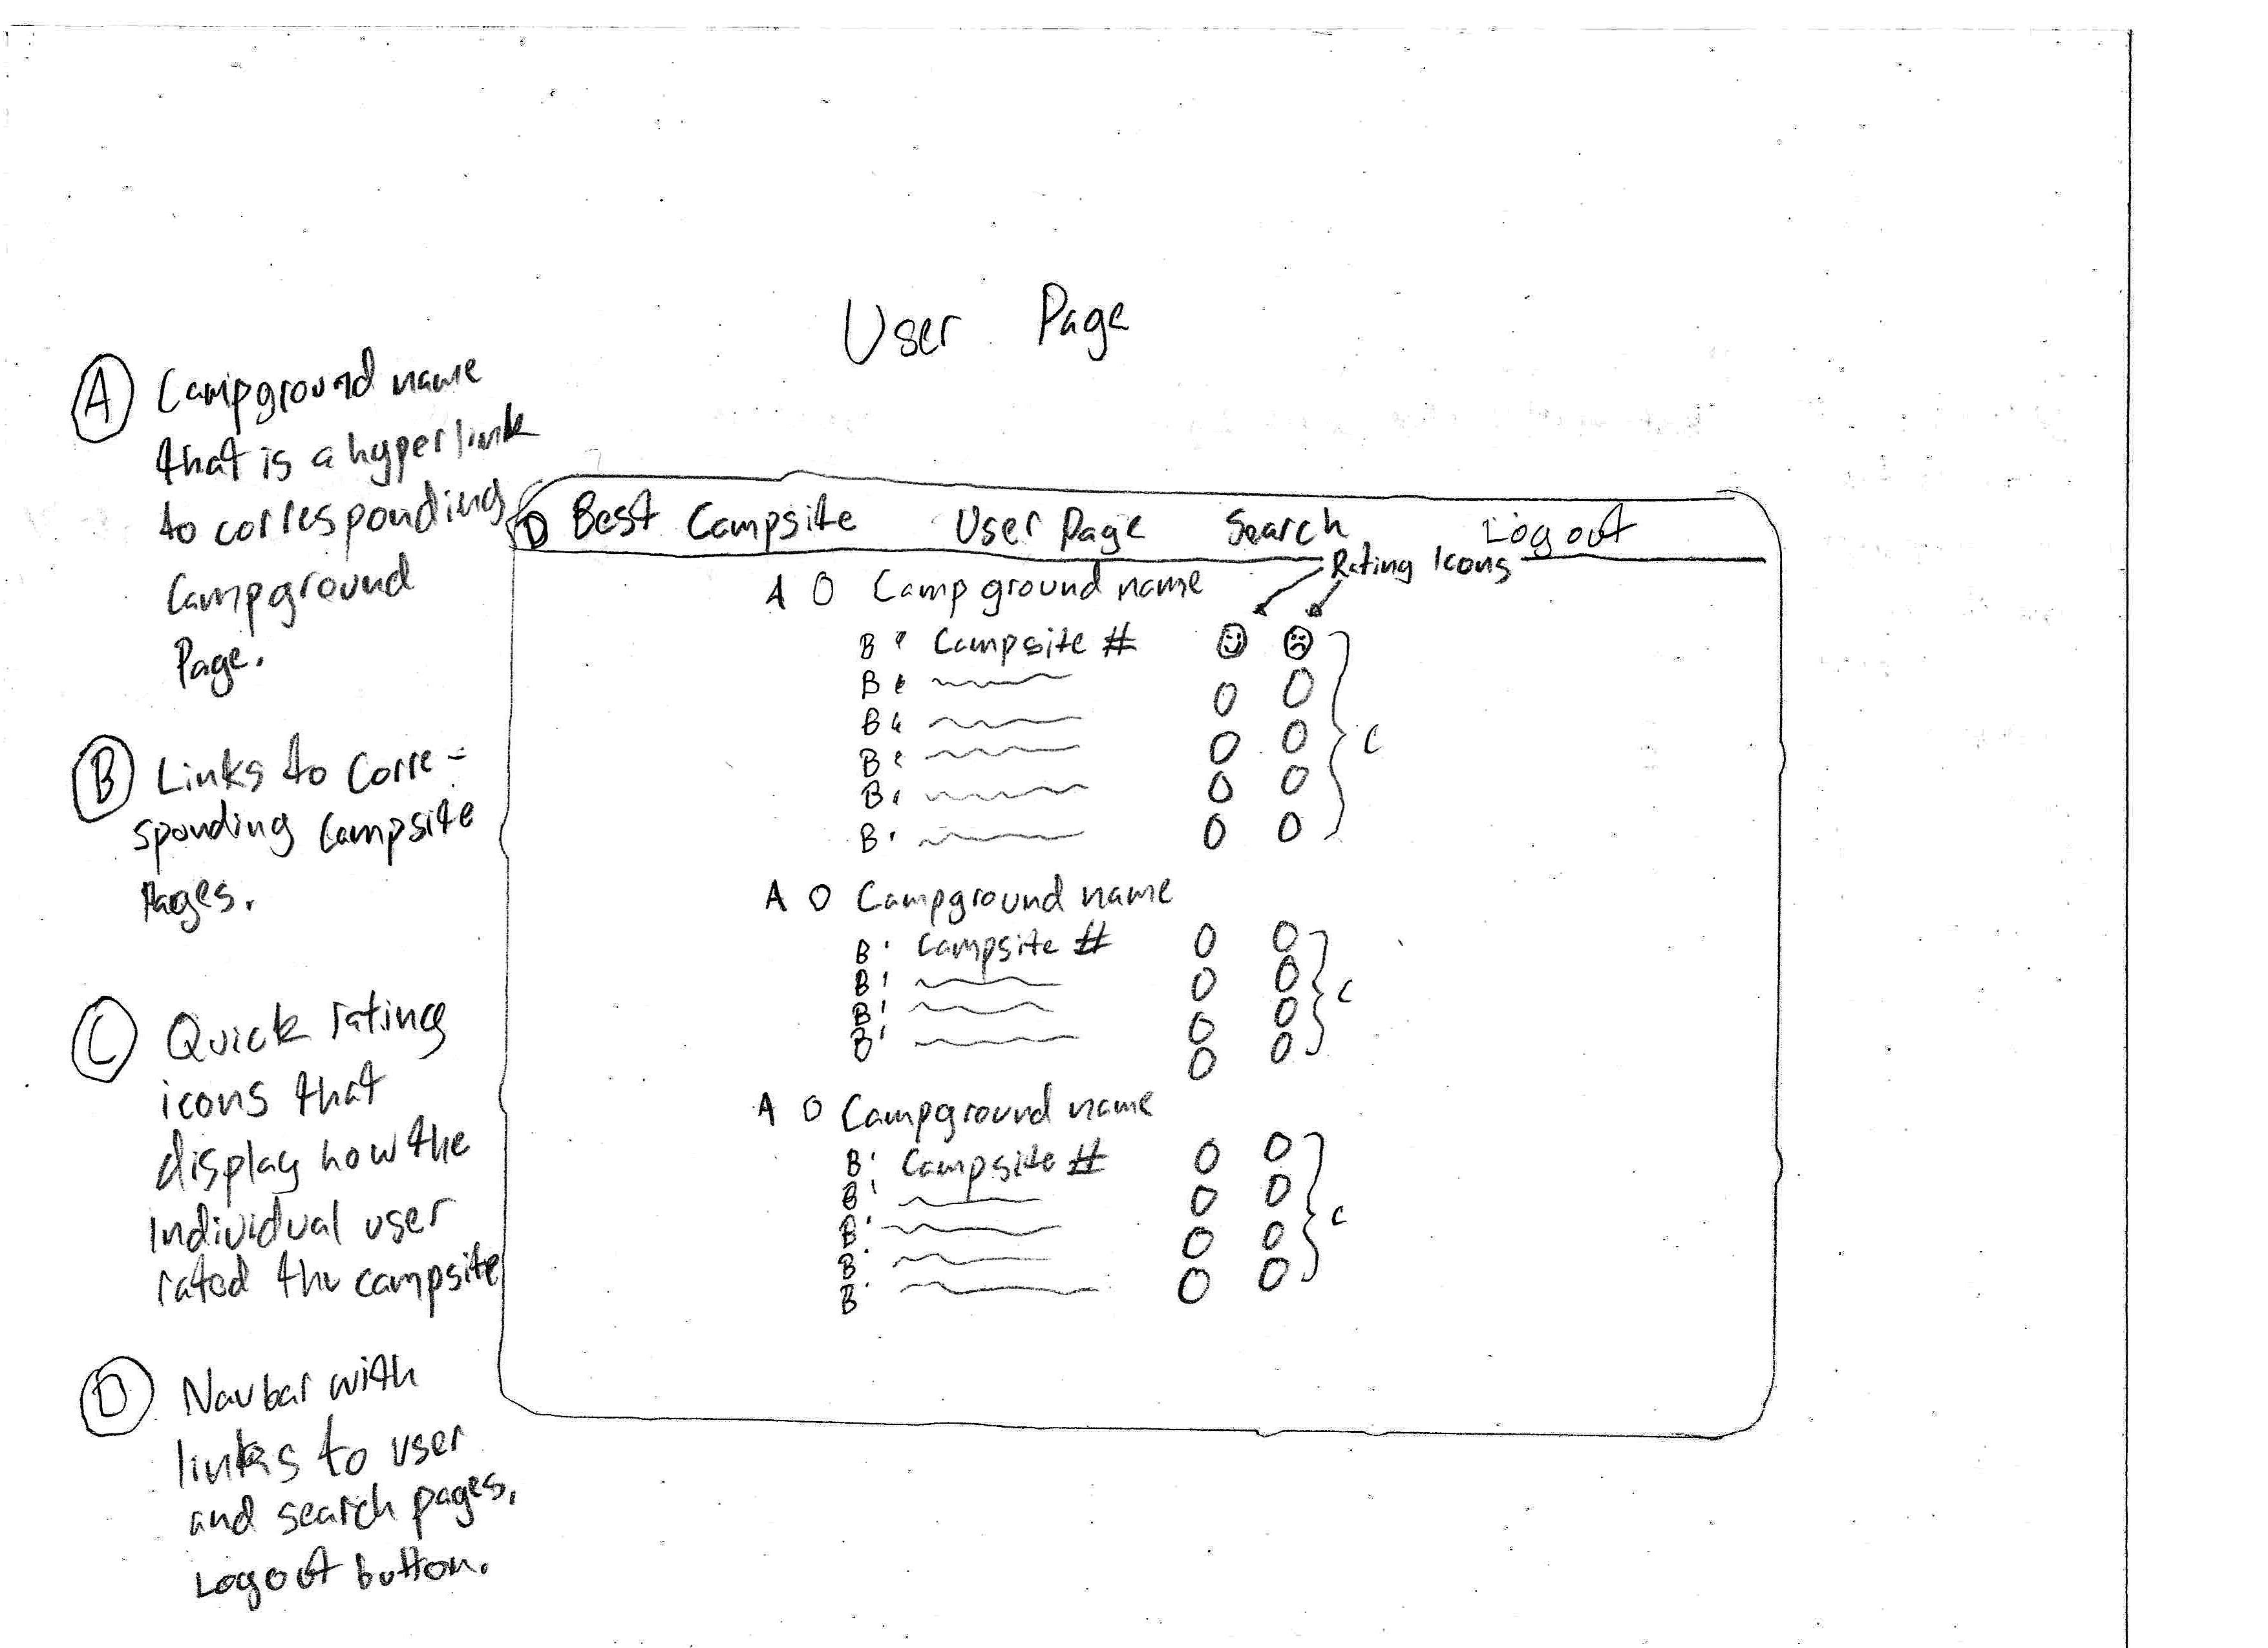 User Page
A Campground name
that is a hyperlink
to corresponding
Campground
Page.
B Links to Corre-
sponding Campsite
Pages.
C Quick rating
icons that
display how the
Individual user
rated the campsite
D Navbar with
links to user
and search pages.
Logout button.
D Best Campsite User Page Search Logout
Rating Icons
A O Campground name
B Campsite #
B
B
B
B
B
C
A O Campground name
B Campsite #
B
B
B
C
A O Campground name
B Campsite #
B
B
B
B
C